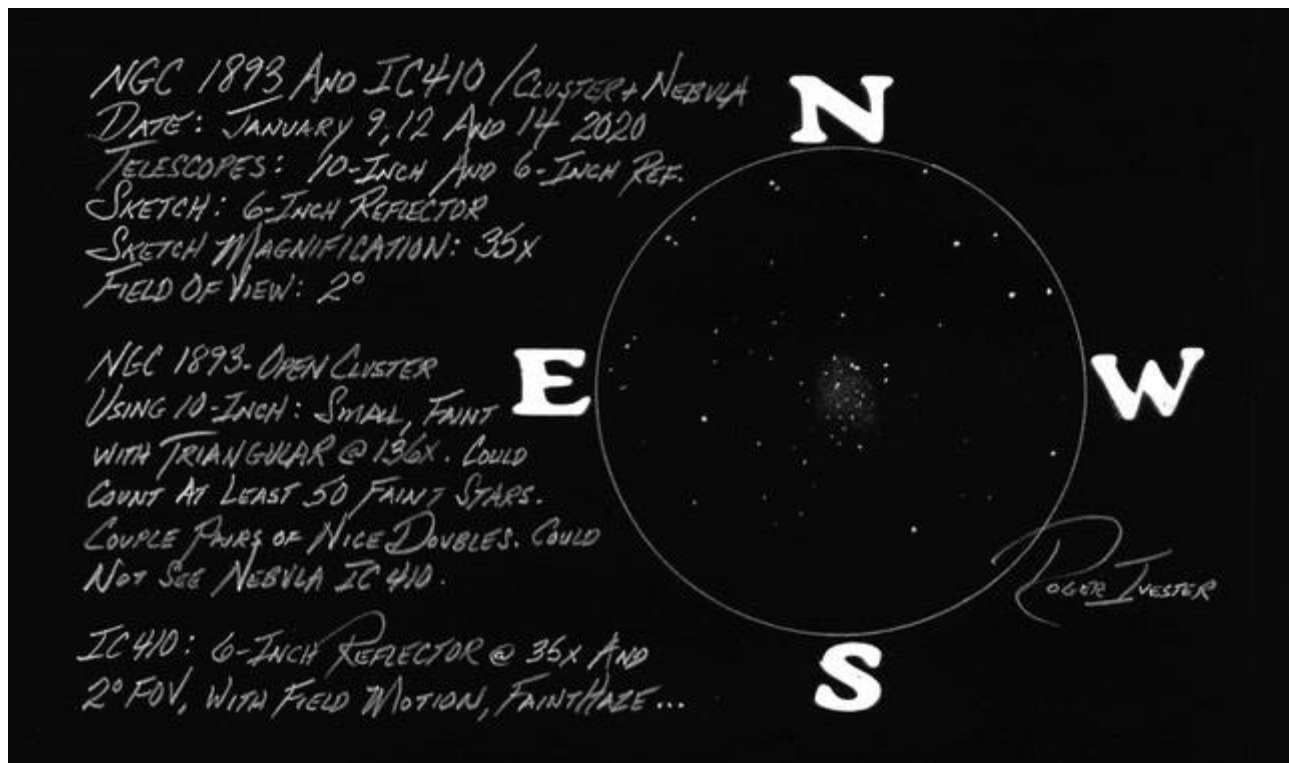 NGC 1893 AND IC410 / CLUSTER + NEBULA
DATE: JANUARY 9, 12 AND 14 2020
TELESCOPES: 10-INCH AND 6-INCH REF.
SKETCH: 6-INCH REFLECTOR
SKETCH MAGNIFICATION: 35X
FIELD OF VIEW: 2°
NGC 1893- OPEN CLUSTER
USING 10-INCH: SMALL, FAINT
WITH TRIANGULAR @ 136X. COULD
COUNT AT LEAST 50 FAINT STARS.
COUPLE PAIRS OF NICE DOUBLES. COULD
NOT SEE NEBULA IC 410.
IC 410: 6-INCH REFLECTOR @ 35X AND
2° FOV, WITH FIELD MOTION, FAINT HAZE...
N
E
W
S
ROGER IVESTER